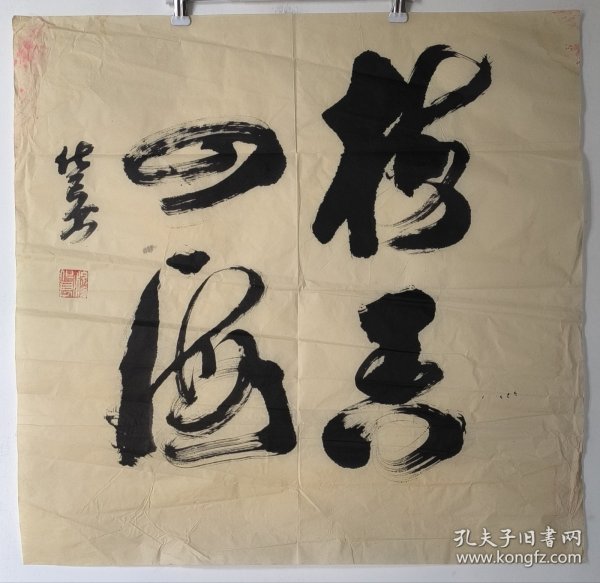 梅香
四海
孔夫子旧書网
www.kongfz.com